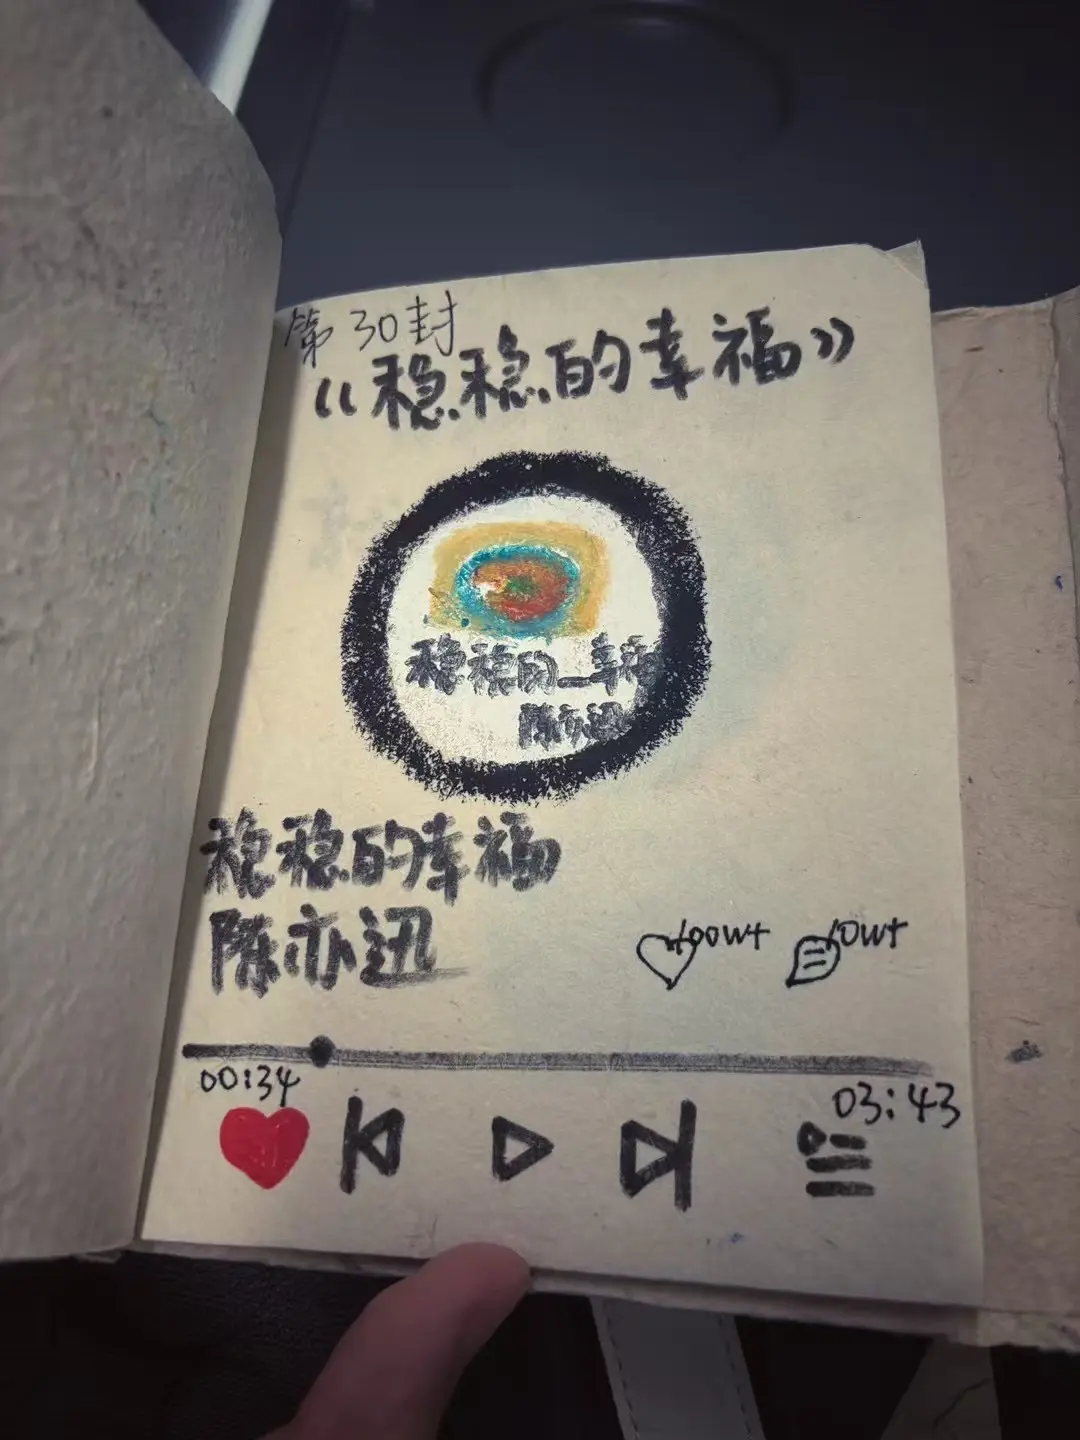 第30封
《稳稳的幸福》
稳稳的_幸福
陈奕迅
稳稳的幸福
陈奕迅
100w+ 10w+
00:34
03:43